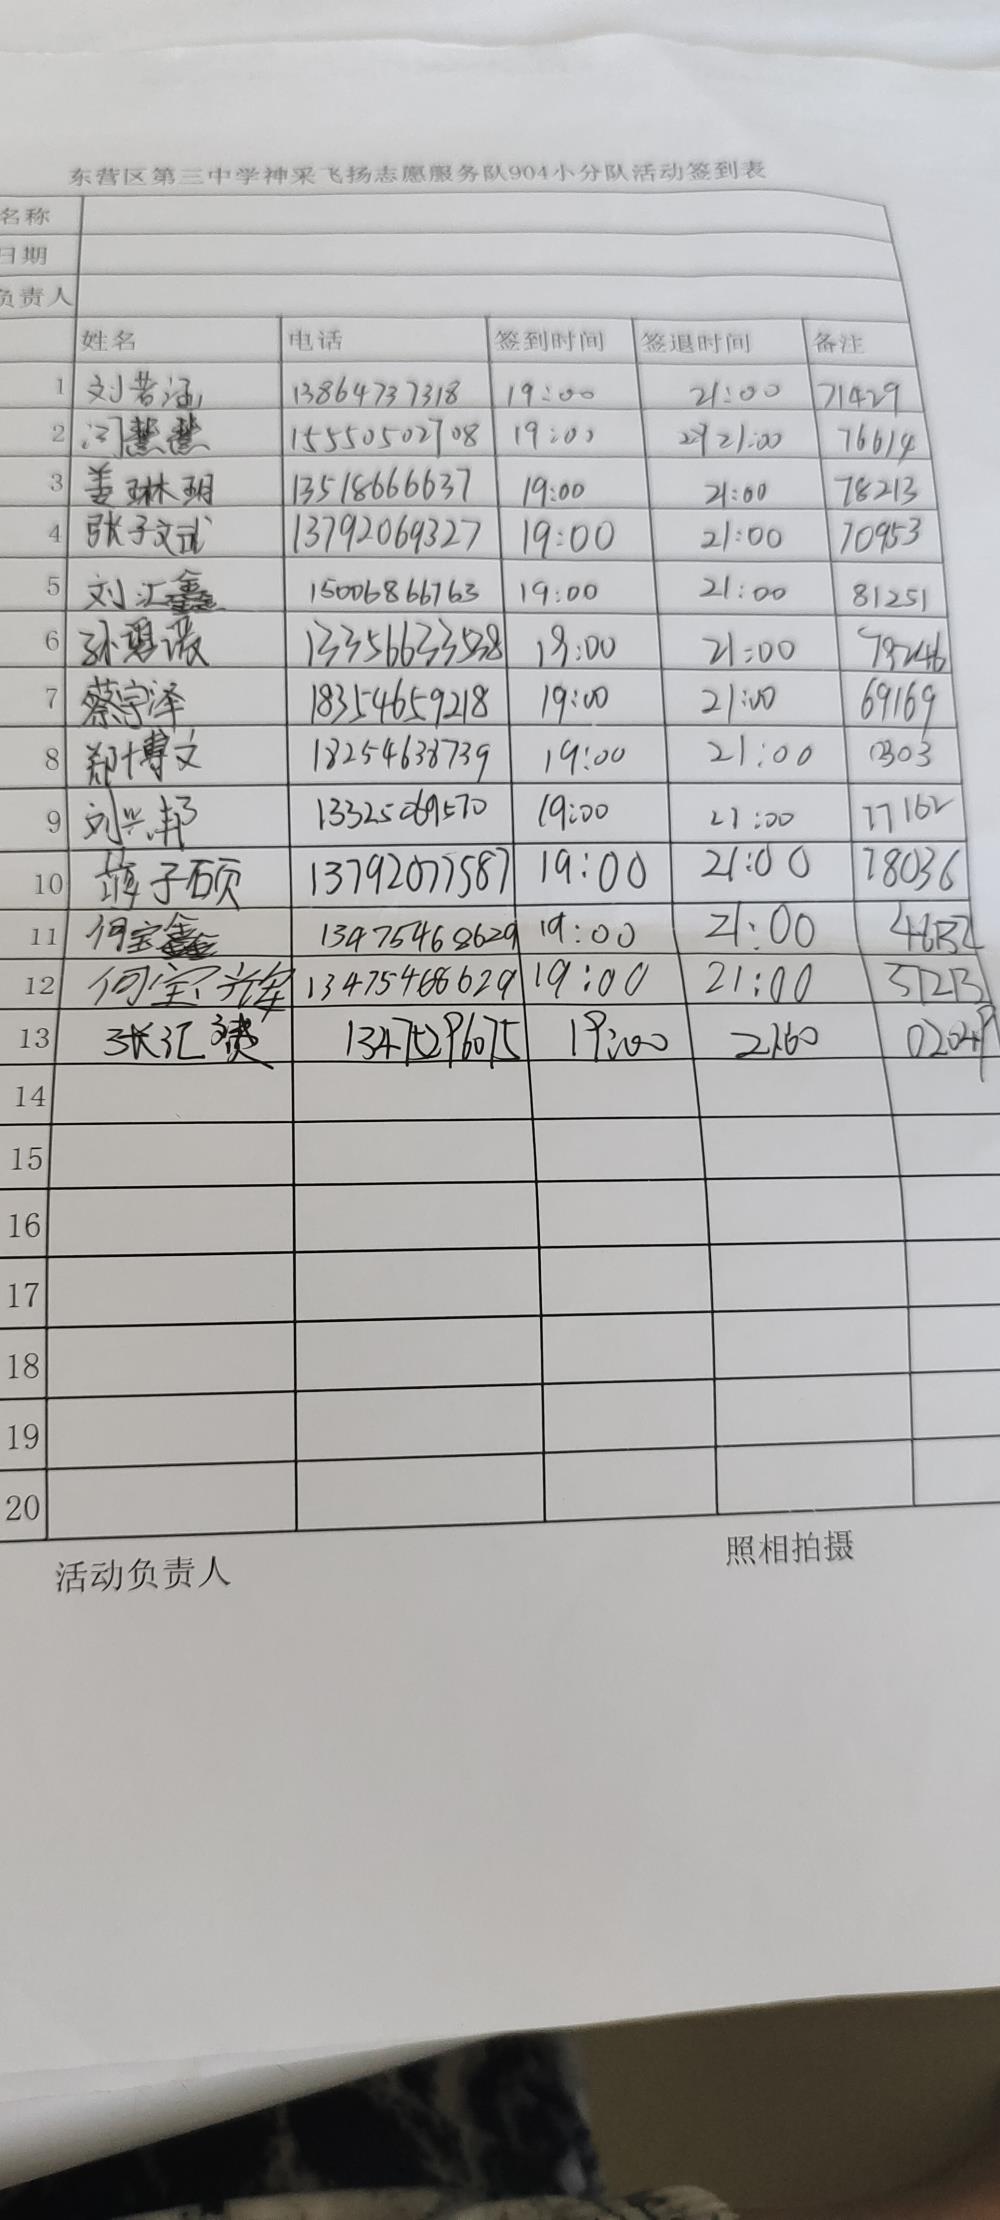 东营区第三中学神采飞扬志愿服务队904小分队活动签到表
名称
日期
负责人
姓名 电话 签到时间 签退时间 备注
1 刘若涵 13864737318 19:00 21:00 71429
2 闫慧慧 15550502708 19:00 21:00 76614
3 姜琳玥 13518666637 19:00 21:00 78213
4 张子文 13792069327 19:00 21:00 70953
5 刘汇鑫 15006866763 19:00 21:00 81251
6 孙 13356633538 19:00 21:00 79246
7 蔡宇泽 18354659218 19:00 21:00 69169
8 郑博文 18254638739 19:00 21:00 0303
9 刘兴邦 13325069570 19:00 21:00 77162
10 薛子硕 13792077587 19:00 21:00 78036
11 何宝鑫 13475468629 19:00 21:00
12 何宝 13475468629 19:00 21:00 37213
13 张汇 13475296075 19:00 21:00 02049
14
15
16
17
18
19
20
活动负责人 照相拍摄